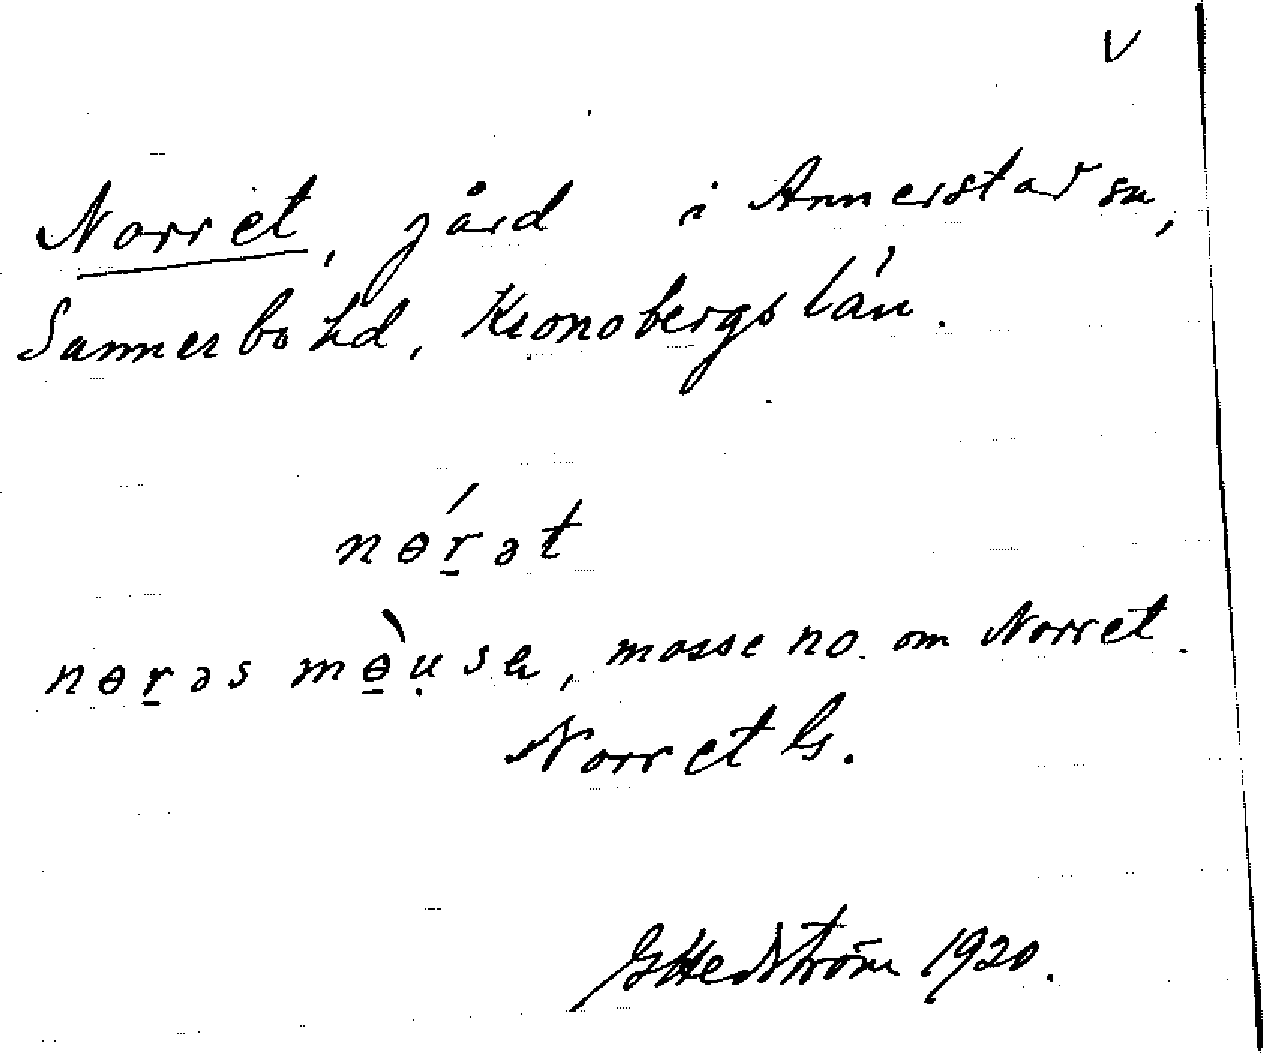 V
Norret, gård i Annerstad sn,
Sunnerbo hd, Kronobergs län.
nɵ́r̠ət
nɵr̠əs mɵ̠̀u̥sa, mosse no. om Norret.
Norret G.
G Hedström 1920.